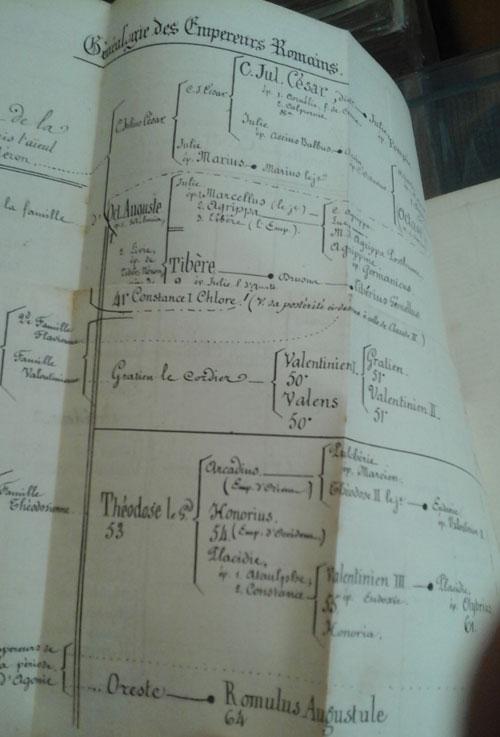 Généalogie des Empereurs Romains.
C. Jul. César
ép. 1. Cornélie, f. de
2. Calpurnie
C. J. César
Julie
ép. Accius Balbus
C. Julius César
Julie
ép. Marius Marius le jᵉ
de la
la famille
Oct. Auguste
Julie
ép. 1. Marcellus (le jᵉ)
2. Agrippa
3. Tibère (l'Emp.)
C. Agrippa
M. Agrippa
Agrippine
ép. Germanicus
2. Livie,
ép. de
Tibère
ép. Julie
Drusus
Tibérius Gemellus
41 Constance I Chlore.
(V. sa postérité ci-dessus à celle de Claude II)
2ᵉ Famille
Flavienne
Famille
Valentinienne
Gratien le Cordier
Valentinien I.
50
Valens
50
Gratien
51
Valentinien II.
51
Famille
Théodosienne
Théodose le Gᵈ
53
Arcadius
(Emp. d'Orient)
Pulchérie
ép. Marcien.
Théodose II le jᵉ
Eudoxie
ép. Valentinien
Honorius.
54 (Emp. d'Occident)
Placidie,
ép. 1. Ataulphe,
2. Constance
Valentinien III
55 ép. Eudoxie.
Placidie,
ép. Olybrius
61.
Honoria.
période
d'Agonie
Oreste
Romulus Augustule
64